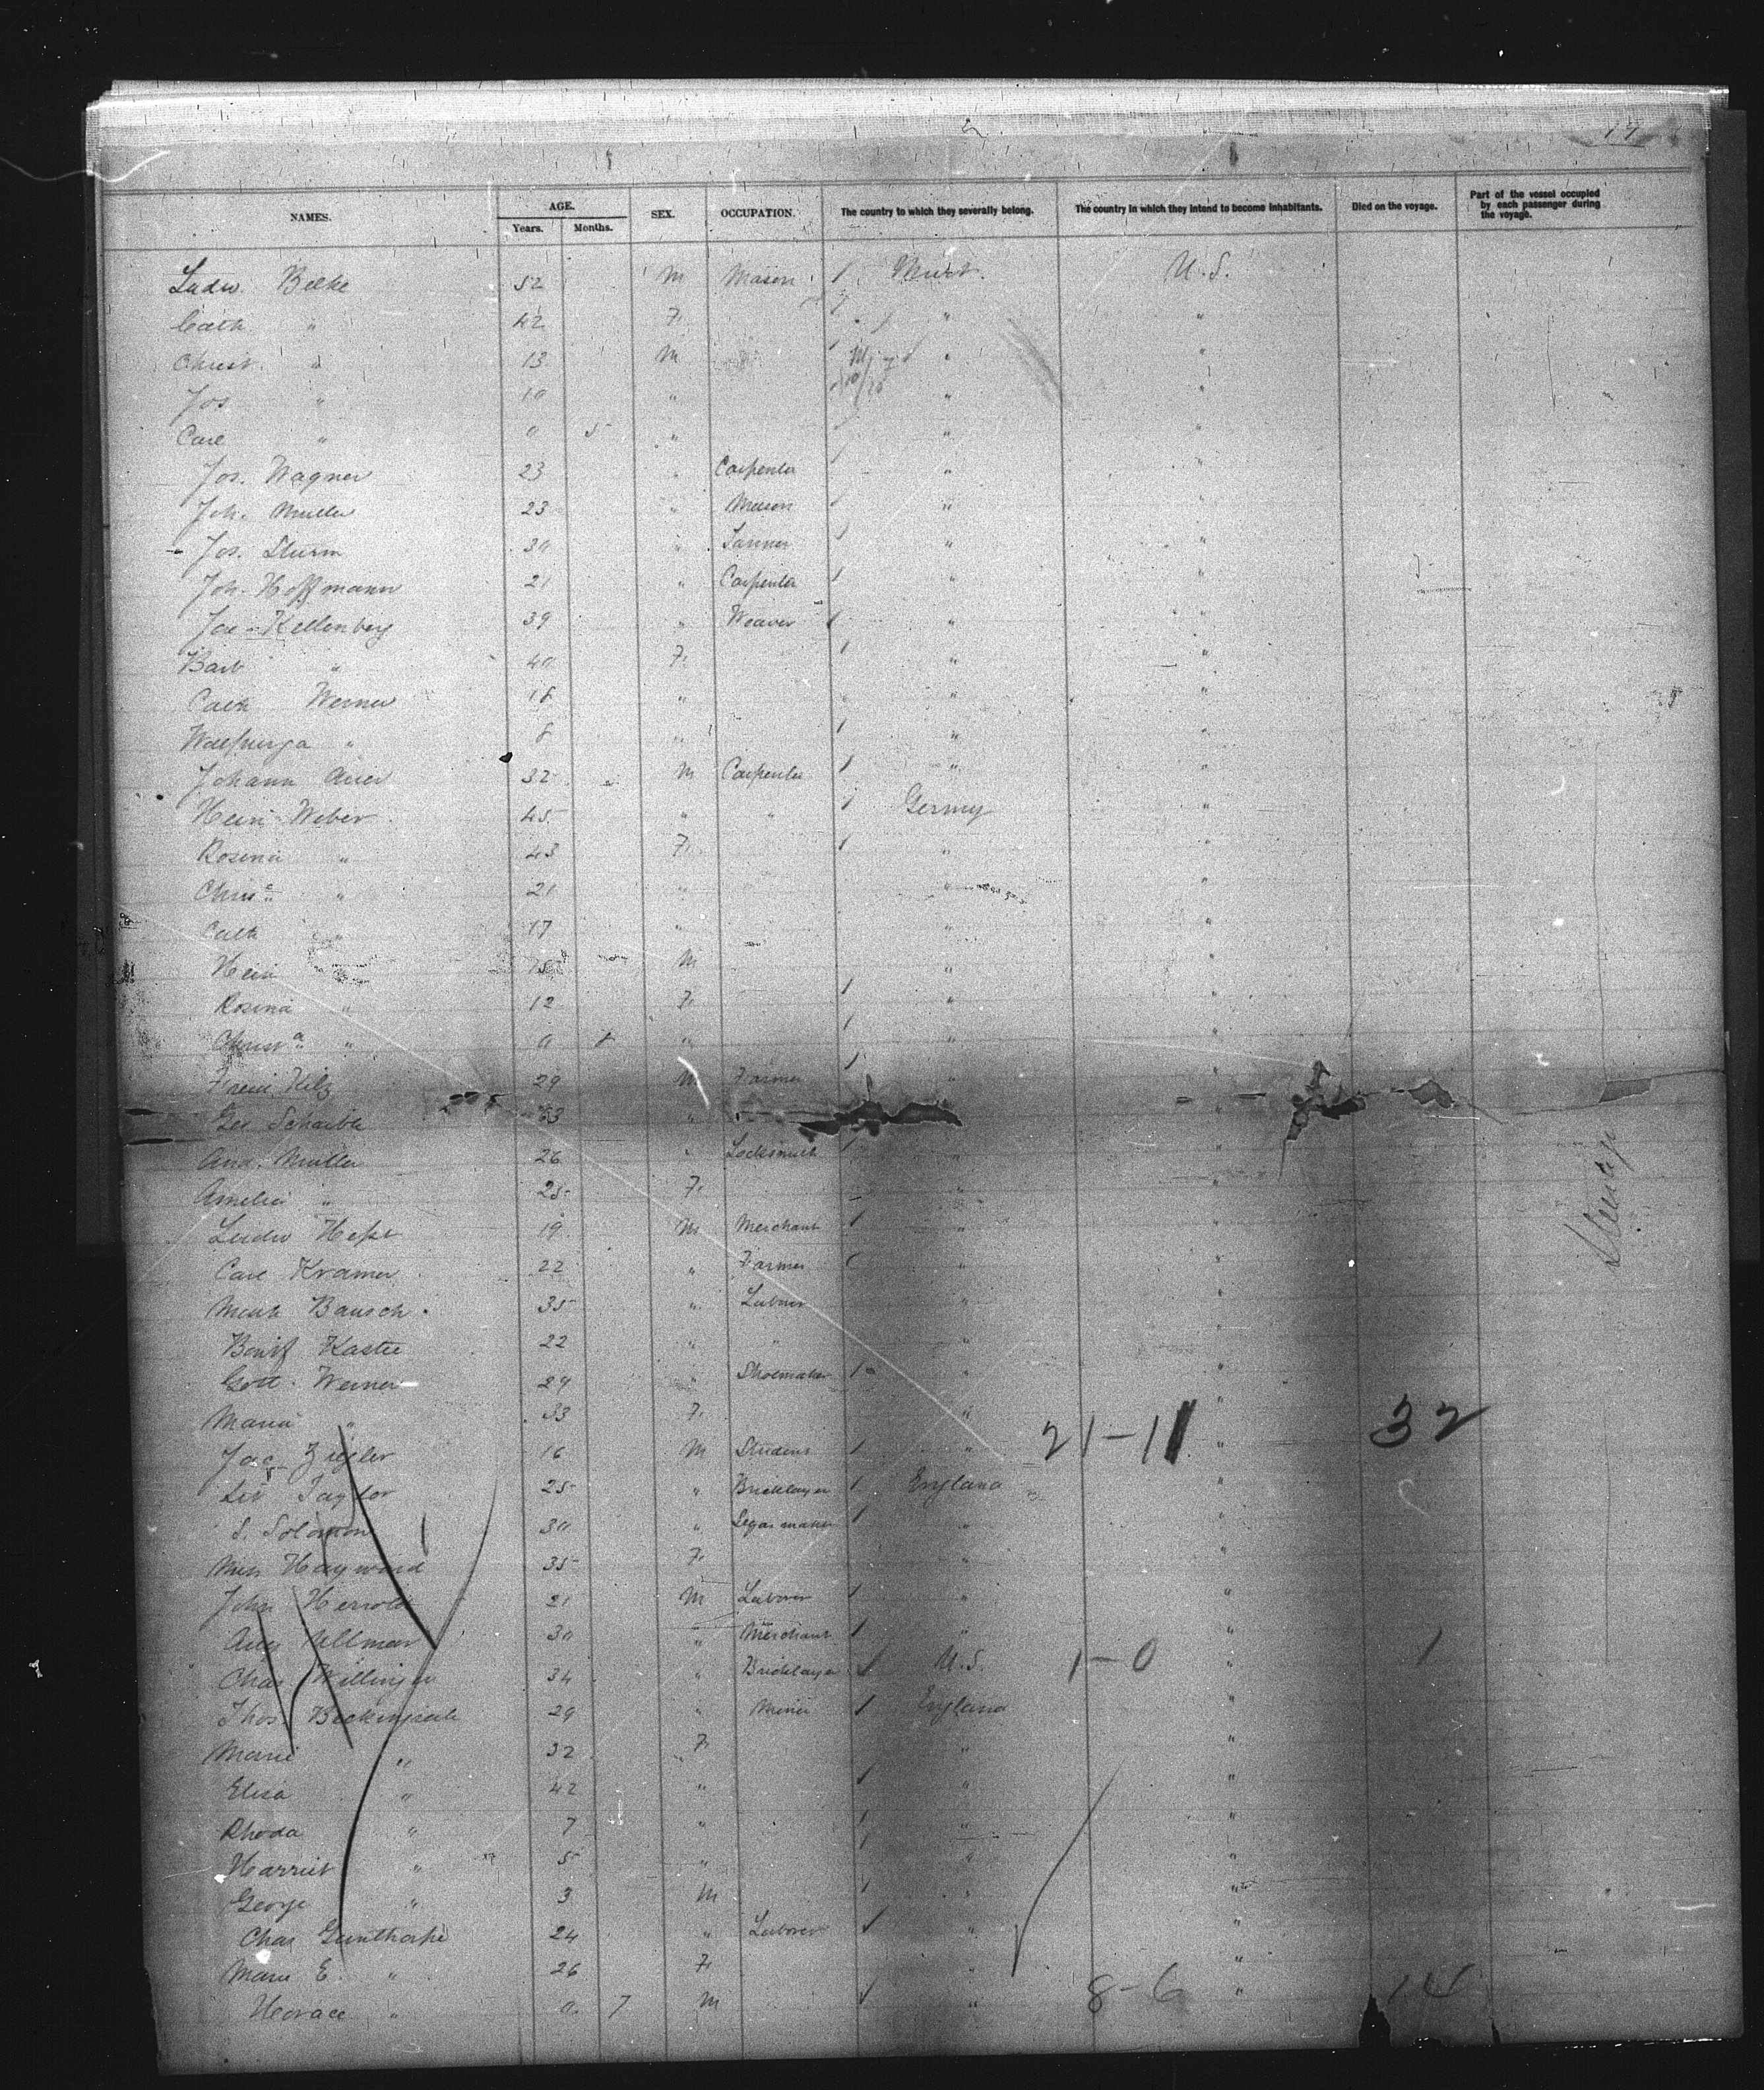 17
NAMES. AGE. SEX. OCCUPATION. The country to which they severally belong. The country in which they intend to become inhabitants. Died on the voyage. Part of the vessel occupied by each passenger during the voyage.
Years. Months.
Ludw. Belke 52 M Mason U.S.
Cath " 42 F. " "
Christ. " 13 M " "
Jos " 10 " " "
Carl " 0 5 " " "
Jos. Wagner 23 " Carpenter " "
Joh. Muller 23 " Mason " "
Jos. Sturm 30 " " "
Joh. Hoffmann 21 " Carpenter " "
Jac. Kellenberg 39 " Weaver " "
Barb " 40 F. " "
Cath Werner 18 " " "
Walpurga " 8 " " "
Johann Auer 32 M Carpenter " "
Hein Weber 45 " " Germy "
Rosina " 43 F. " "
Chrisa " 21 " " "
Cath " 17 " " "
Hein " 15 M " "
Rosina " 12 F. " "
Christa " 0 8 " " "
29 M Farmer " "
Geo Schaible 33 " "
And. Muller 26 " Locksmith " "
Amelia " 25 F. " "
Ludw 19 M Merchant " "
Carl Kramer 22 " Farmer " "
Bausch 35 " Labner " "
22 " " " "
Gott. Werner 29 " Shoemaker " "
Maria " 33 F. " 21-11 " 32
Jac Zigler 16 M Student " "
Taylor 25 " Bricklayer England "
S. Solomon 30 " Segar maker " "
Hayward 35 F. " "
John Herrold 21 M Laborer " "
Aug Ullman 30 " Merchant " "
Chas Willinger 34 " Bricklayer U.S. 1-0 " 1
Thos. 29 " Miner England "
Marie " 32 F. " "
Elisa " 42 " " "
Rhoda " 7 " " "
Harriet " 5 " " "
George " 3 M " "
Chas Gunthorpe 24 " Laborer " "
Marie E. " 26 F. " "
Horace " 0 7 M " 8-6 " 14